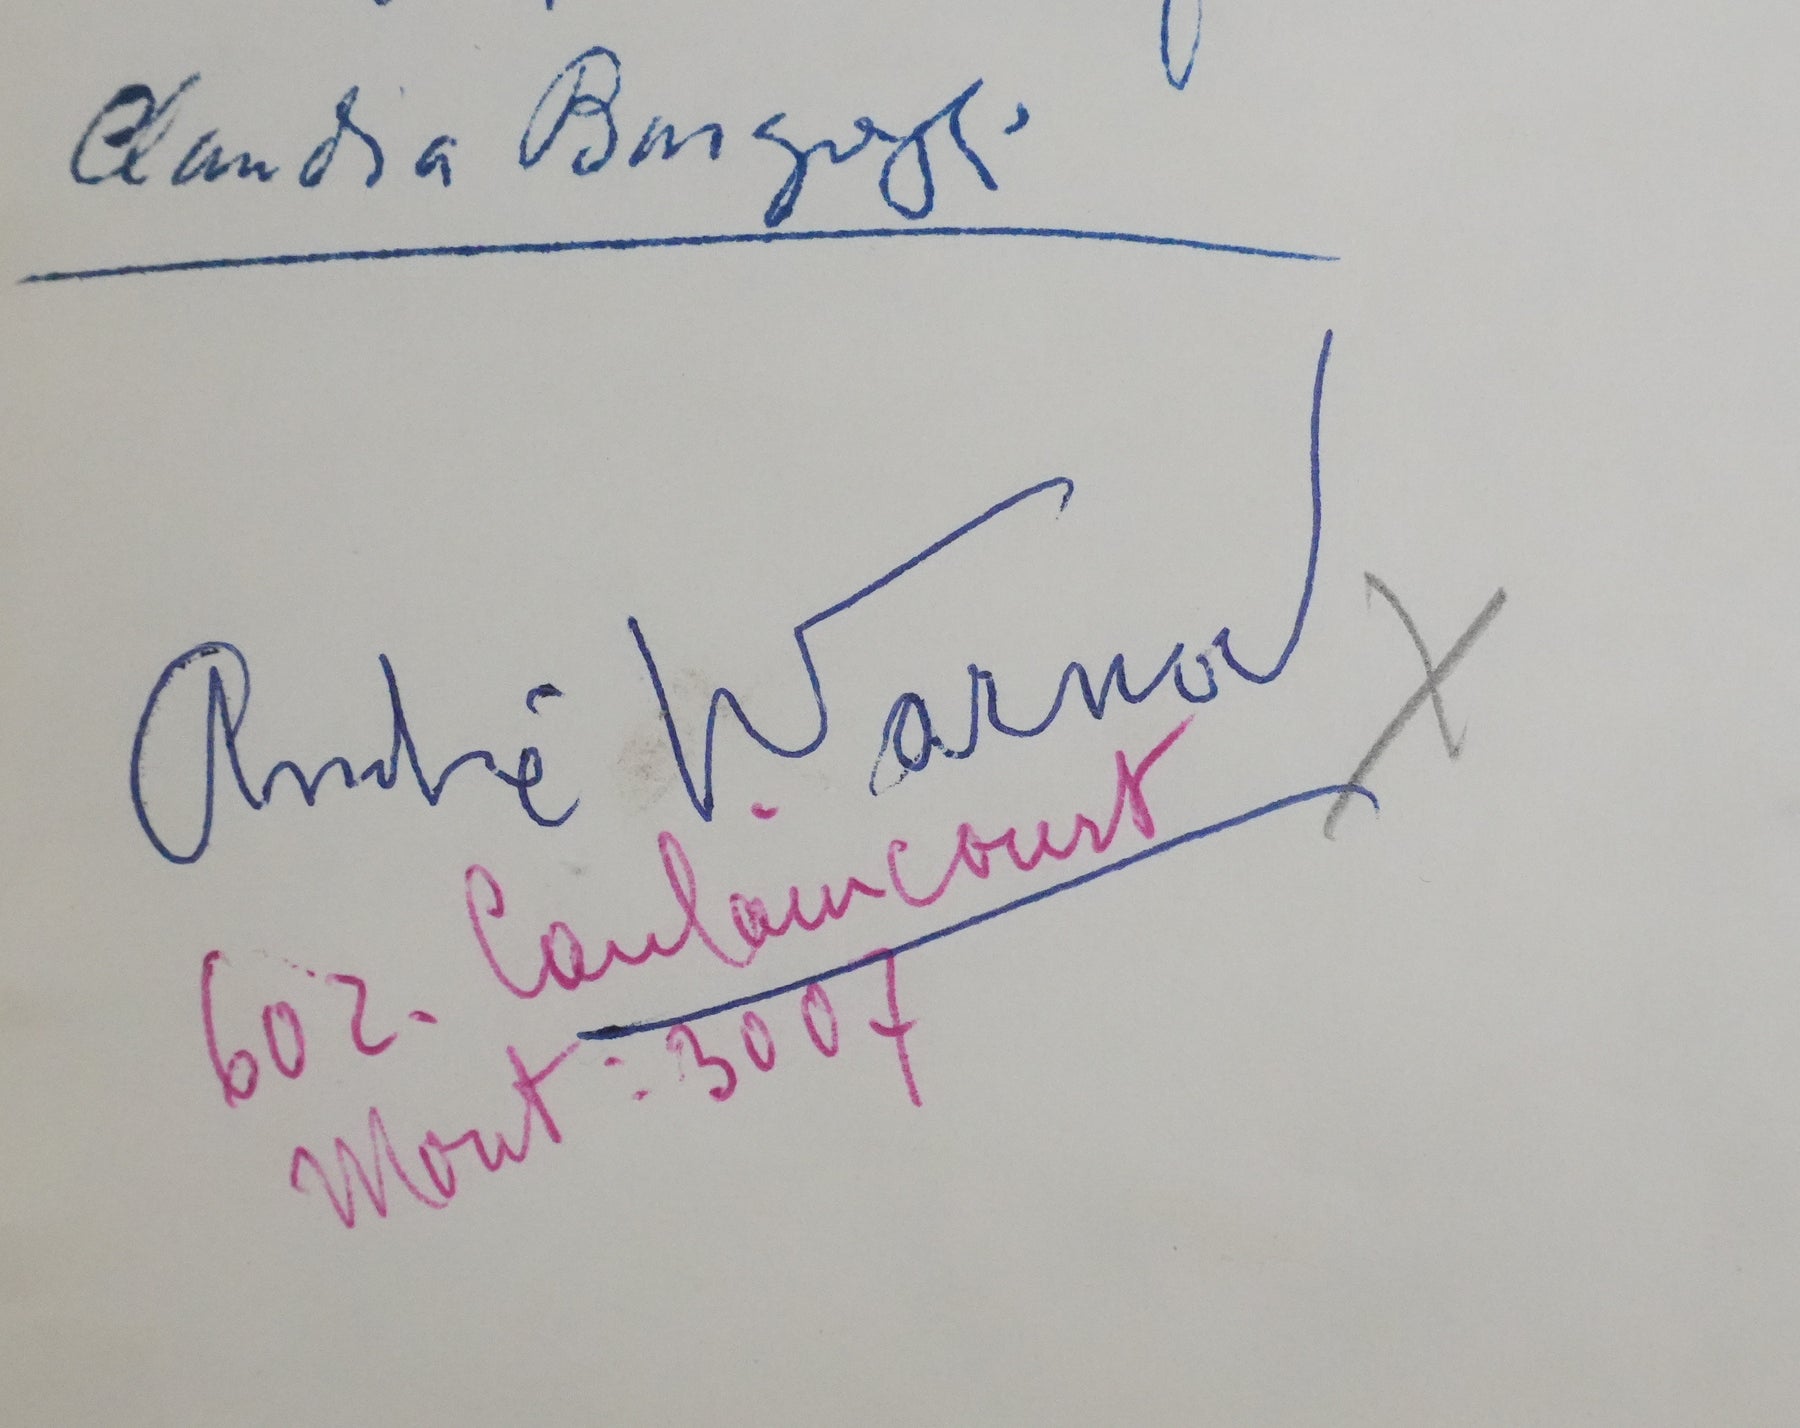 Claudia
André Warnod
60 r. Caulaincourt
Mont : 3007